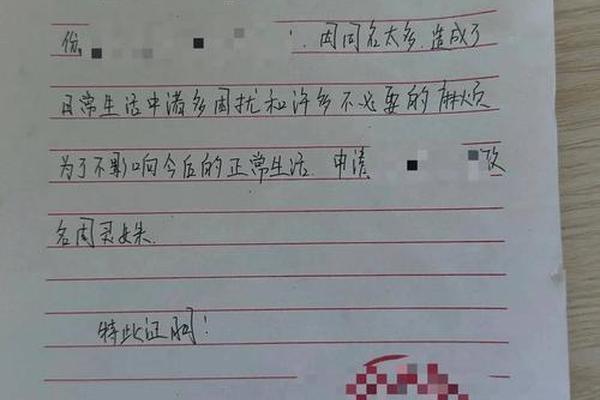 份, 因同名太多.造成了
日常生活中诸多困扰和许多不必要的麻烦
为了不影响今后的正常生活.申请 改
名周灵姝.
特此证明!